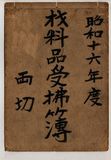 昭和十六年度
材料品受拂簿
両切